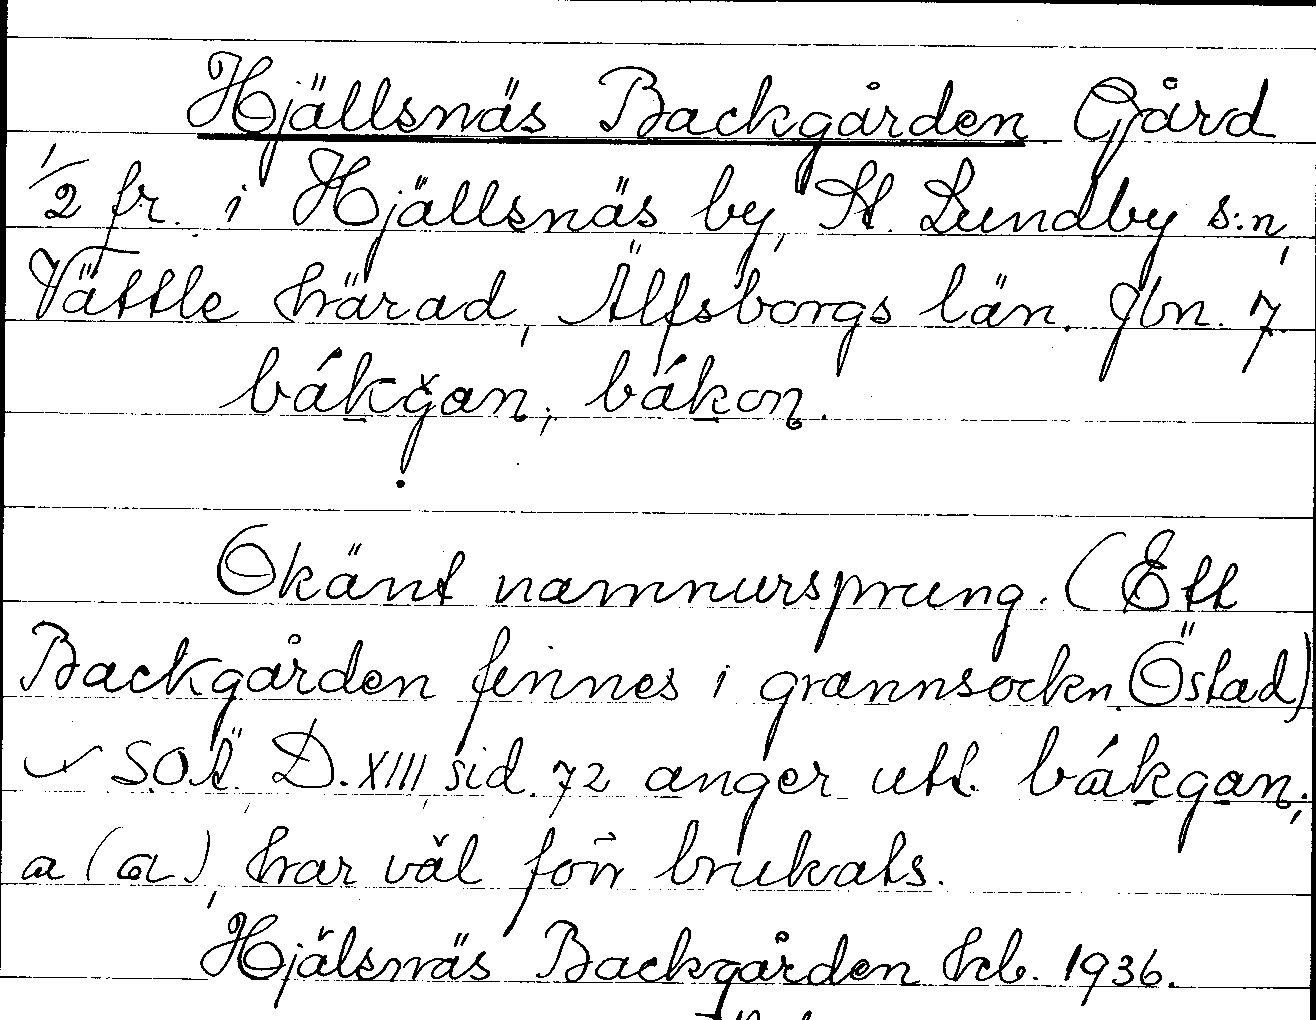 Hjällsnäs Backgården Gård
1/2 fr. i Hjällsnäs by, St. Lundby s:n,
Vättle härad, Älfsborgs län. Jbn. 7.
bákgan; bákon.
Okänt namnursprung. (Ett
Backgården finnes i grannsockn. Östad)
✓ S.O.Ä. D. XIII, sid. 72 anger utt. bákgan;
a (a), har väl förr brukats.
Hjälsnäs Backgården hcb. 1936.